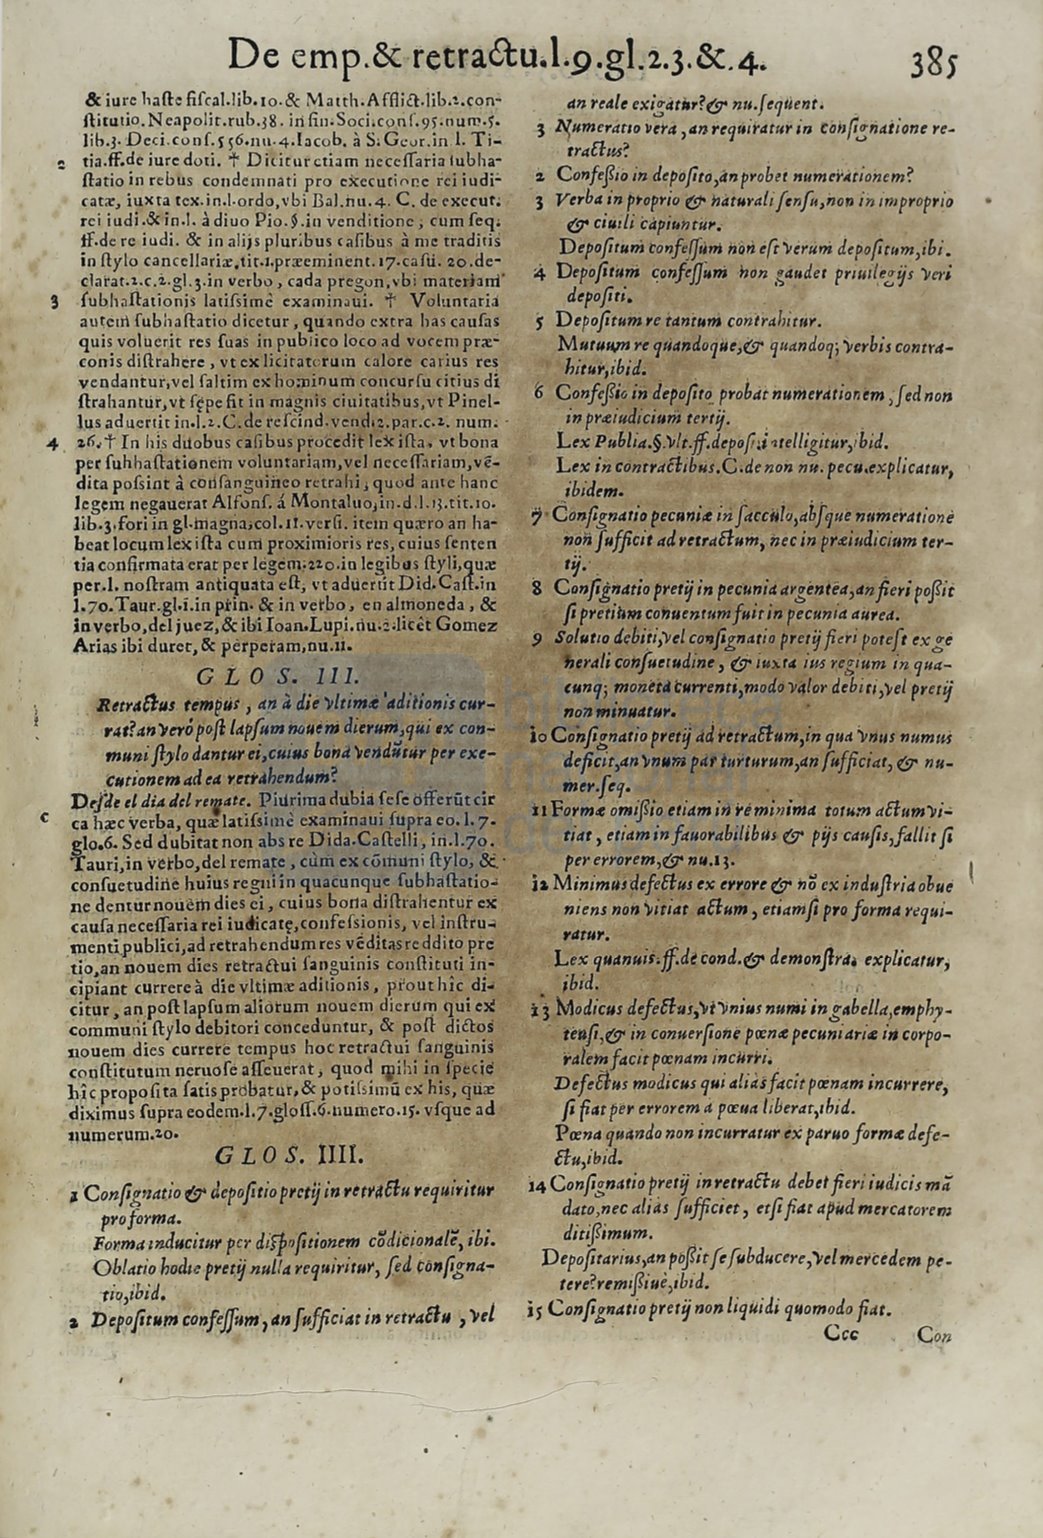 De emp.& retractu.l.9.gl.2.3.&.4. 385
& iure hastę fiscal.lib.10.& Matth.Afflict.lib.2.con-
stitutio.Neapolit.rub.38. in fin.Soci.conf.95.num.5.
lib.3. Deci.conf.556.nu.4.Iacob. à S.Geor.in l. Ti-
2 tia.ff.de iure doti. † Dicitur etiam necessaria subha-
statio in rebus condemnati pro executione rei iudi-
catæ, iuxta tex.in.l.ordo,vbi Bal.nu.4. C. de execut.
rei iudi.& in.l. à diuo Pio.§.in venditione, cum seq.
ff.de re iudi. & in alijs pluribus casibus à me traditis
in stylo cancellariæ,tit.1.præeminent.17.casu. 20.de-
clarat.2.c.2.gl.3.in verbo, cada pregon,vbi materiam
3 subhastationis latissimè examinaui. † Voluntaria
autem subhastatio dicetur, quando extra has causas
quis voluerit res suas in publico loco ad vocem præ-
conis distrahere, vt ex licitatorum calore carius res
vendantur,vel saltim ex hominum concursu citius di
strahantur,vt sępe fit in magnis ciuitatibus,vt Pinel-
lus aduertit in.l.2.C.de rescind.vend.2.par.c.2. num.
4 26.† In his duobus casibus procedit lex ista, vt bona
per subhastationem voluntariam,vel necessariam,vē-
dita possint à consanguineo retrahi, quod ante hanc
legem negauerat Alfons. á Montaluo,in.d.l.13.tit.10.
lib.3.fori in gl.magna,col.11.versi. item quæro an ha-
beat locum lex ista cum proximioris res, cuius senten
tia confirmata erat per legem.220.in legibus styli,quæ
per.l. nostram antiquata est, vt aduertit Did.Cast.in
l.70.Taur.gl.1.in prin. & in verbo, en almoneda, &
in verbo,del juez,& ibi Ioan.Lupi.nu.2.licèt Gomez
Arias ibi duret,& perperam,nu.11.
G L O S. III.
Retractus tempus, an à die vltimæ aditionis cur-
rat?an verò post lapsum nouem dierum,qui ex con-
muni stylo dantur ei,cuius bona vendūtur per exe-
cutionem ad ea retrahendum?
Desde el dia del remate. Plurima dubia sese offerūt cir
c ca hæc verba, quæ latissimè examinaui supra eo.l.7.
glo.6. Sed dubitat non abs re Dida.Castelli, in.l.70.
Tauri,in verbo,del remate, cùm ex cōmuni stylo, &
consuetudine huius regni in quacunque subhastatio-
ne dentur nouèm dies ei, cuius bona distrahentur ex
causa necessaria rei iudicatę,confessionis, vel instru-
menti publici,ad retrahendum res vēditas reddito pre
tio,an nouem dies retractui sanguinis constituti in-
cipiant currere à die vltimæ aditionis, prout hîc di-
citur, an post lapsum aliorum nouem dierum qui ex
communi stylo debitori conceduntur, & post dictos
nouem dies currere tempus hoc retractui sanguinis
constitutum neruose asseuerat, quod mihi in specie
hîc proposita satis probatur,& potissimū ex his, quæ
diximus supra eodem.l.7.gloss.6.numero.15. vsque ad
numerum.20.
G L O S. IIII.
1 Consignatio & depositio pretij in retractu requiritur
pro forma.
Forma inducitur per dispositionem cōdicionalē, ibi.
Oblatio hodie pretij nulla requiritur, sed consigna-
tio,ibid.
2 Depositum confessum, an sufficiat in retractu, vel
an reale exigatur?& nu.sequent.
3 Numeratio vera, an requiratur in consignatione re-
tractus?
2 Confessio in deposito,an probet numerationem?
3 Verba in proprio & naturali sensu,non in improprio
& ciuili capiuntur.
Depositum confessum non est verum depositum,ibi.
4 Depositum confessum non gaudet priuilegijs veri
depositi.
5 Depositum re tantum contrahitur.
Mutuum re quandoque,& quandoq; verbis contra-
hitur,ibid.
6 Confessio in deposito probat numerationem, sed non
in præiudicium tertij.
Lex Publia.§.vlt.ff.depos.intelligitur,ibid.
Lex in contractibus.C.de non nu. pecu.explicatur,
ibidem.
7 Consignatio pecuniæ in sacculo,absque numeratione
non sufficit ad retractum, nec in præiudicium ter-
tij.
8 Consignatio pretij in pecunia argentea,an fieri possit
si pretium conuentum fuit in pecunia aurea.
9 Solutio debiti,vel consignatio pretij fieri potest ex ge
nerali consuetudine, & iuxta ius regium in qua-
cunq; moneta currenti,modo valor debiti,vel pretij
non minuatur.
10 Consignatio pretij ad retractum,in qua vnus numus
deficit,an vnum par turturum,an sufficiat, & nu-
mer.seq.
11 Formæ omissio etiam in re minima totum actum vi-
tiat, etiam in fauorabilibus & pijs causis,fallit si
per errorem,& nu.13.
12 Minimus defectus ex errore & nō ex industria obue
niens non vitiat actum, etiamsi pro forma requi-
ratur.
Lex quamuis.ff.de cond.& demonstra. explicatur,
ibid.
13 Modicus defectus,vt vnius numi in gabella,emphy-
teusi,& in conuersione pœnæ pecuniariæ in corpo-
ralem facit pœnam incurri.
Defectus modicus qui alias facit pœnam incurrere,
si fiat per errorem à pœna liberat,ibid.
Pœna quando non incurratur ex paruo formæ defe-
ctu,ibid.
14 Consignatio pretij in retractu debet fieri iudicis mā
dato,nec alias sufficiet, etsi fiat apud mercatorem
ditissimum.
Depositarius,an possit se subducere,vel mercedem pe-
tere?remissiuè,ibid.
15 Consignatio pretij non liquidi quomodo fiat.
Ccc Con